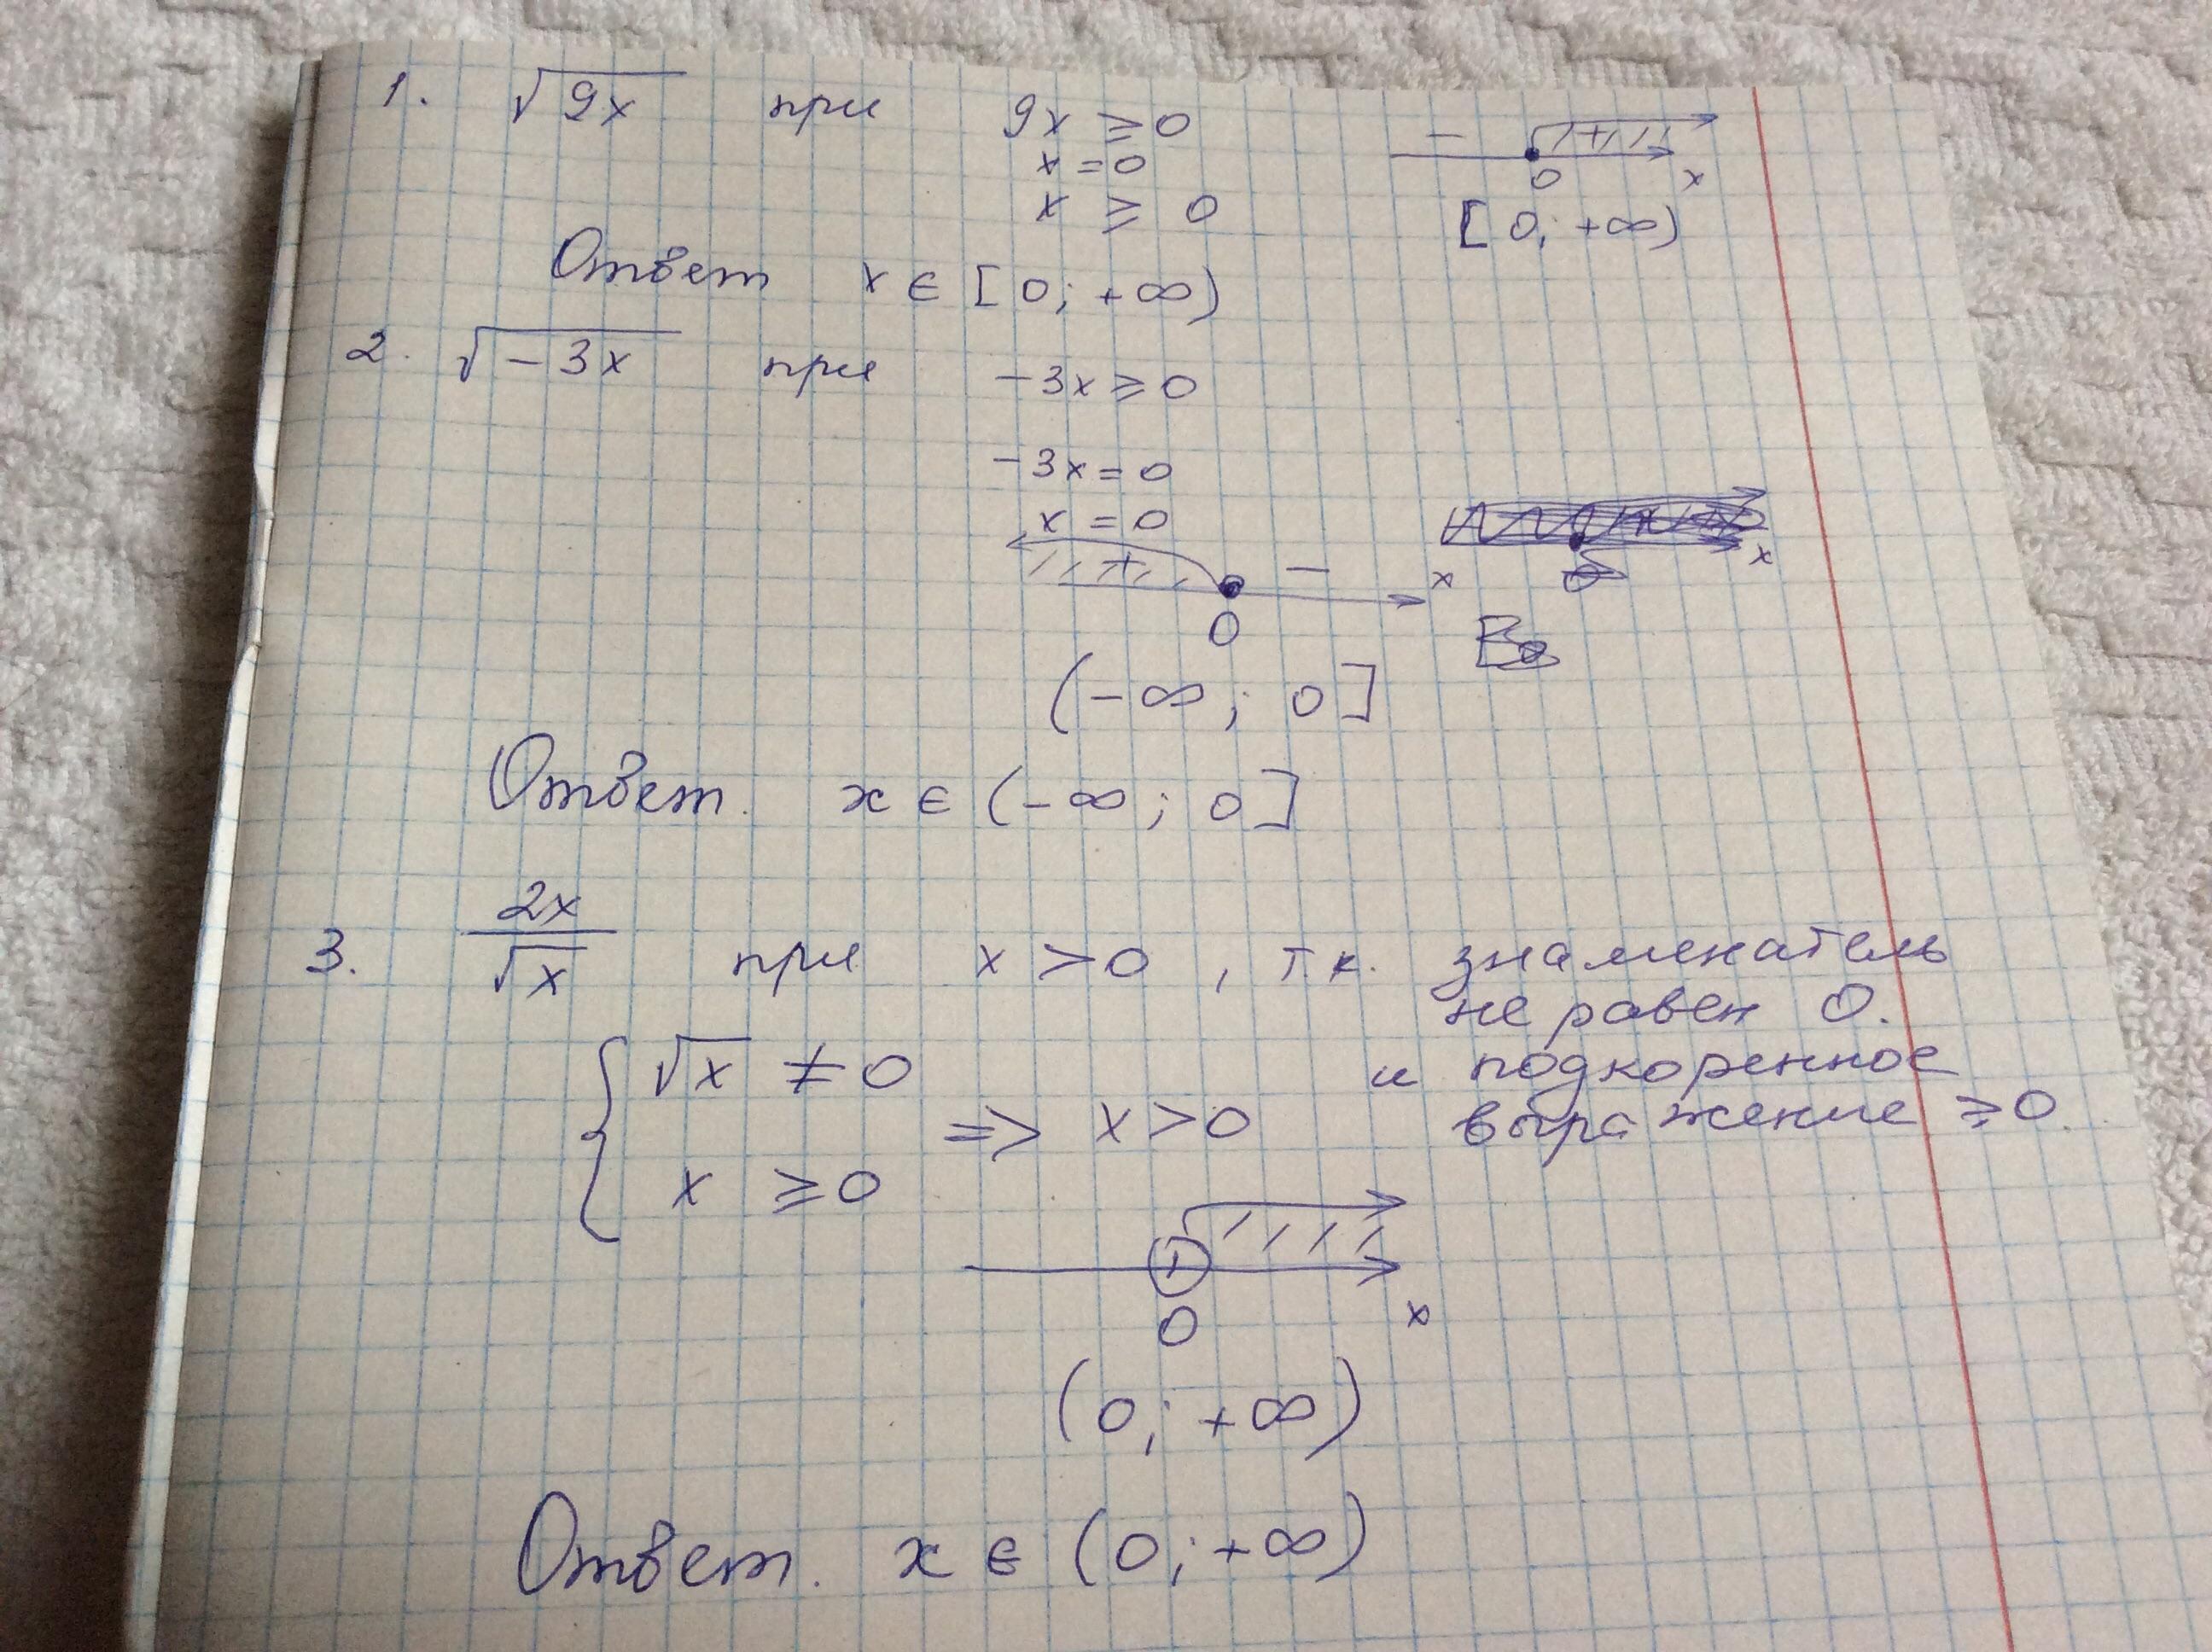 1. √9x при 9x ≥ 0
x = 0
x ≥ 0
− +
0 x
[0; +∞)
Ответ x ∈ [0; +∞)
2. √−3x при −3x ≥ 0
−3x = 0
x = 0
+ − x
0
x
(−∞; 0]
Ответ. x ∈ (−∞; 0]
3. 2x/√x при x > 0, т.к. знаменатель
не равен 0.
и подкоренное
выражение ≥ 0.
{ √x ≠ 0
x ≥ 0
=> x > 0
0 x
(0; +∞)
Ответ. x ∈ (0; +∞)